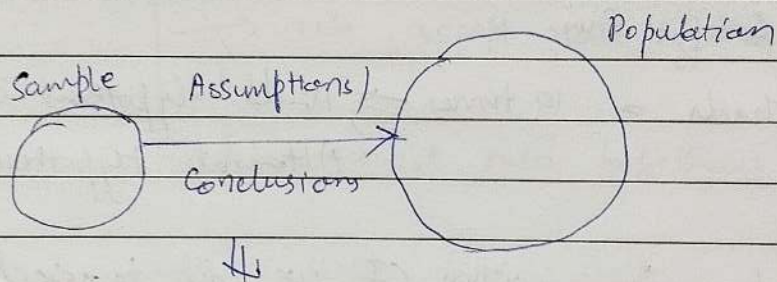 Population
Sample Assumptions/
Conclusions